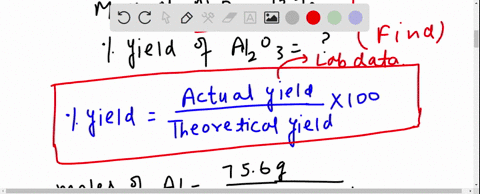 % yield of Al2O3 = ? (Find)
Lab data
% yield = Actual yield / Theoretical yield × 100
75.6g
moles of Al =